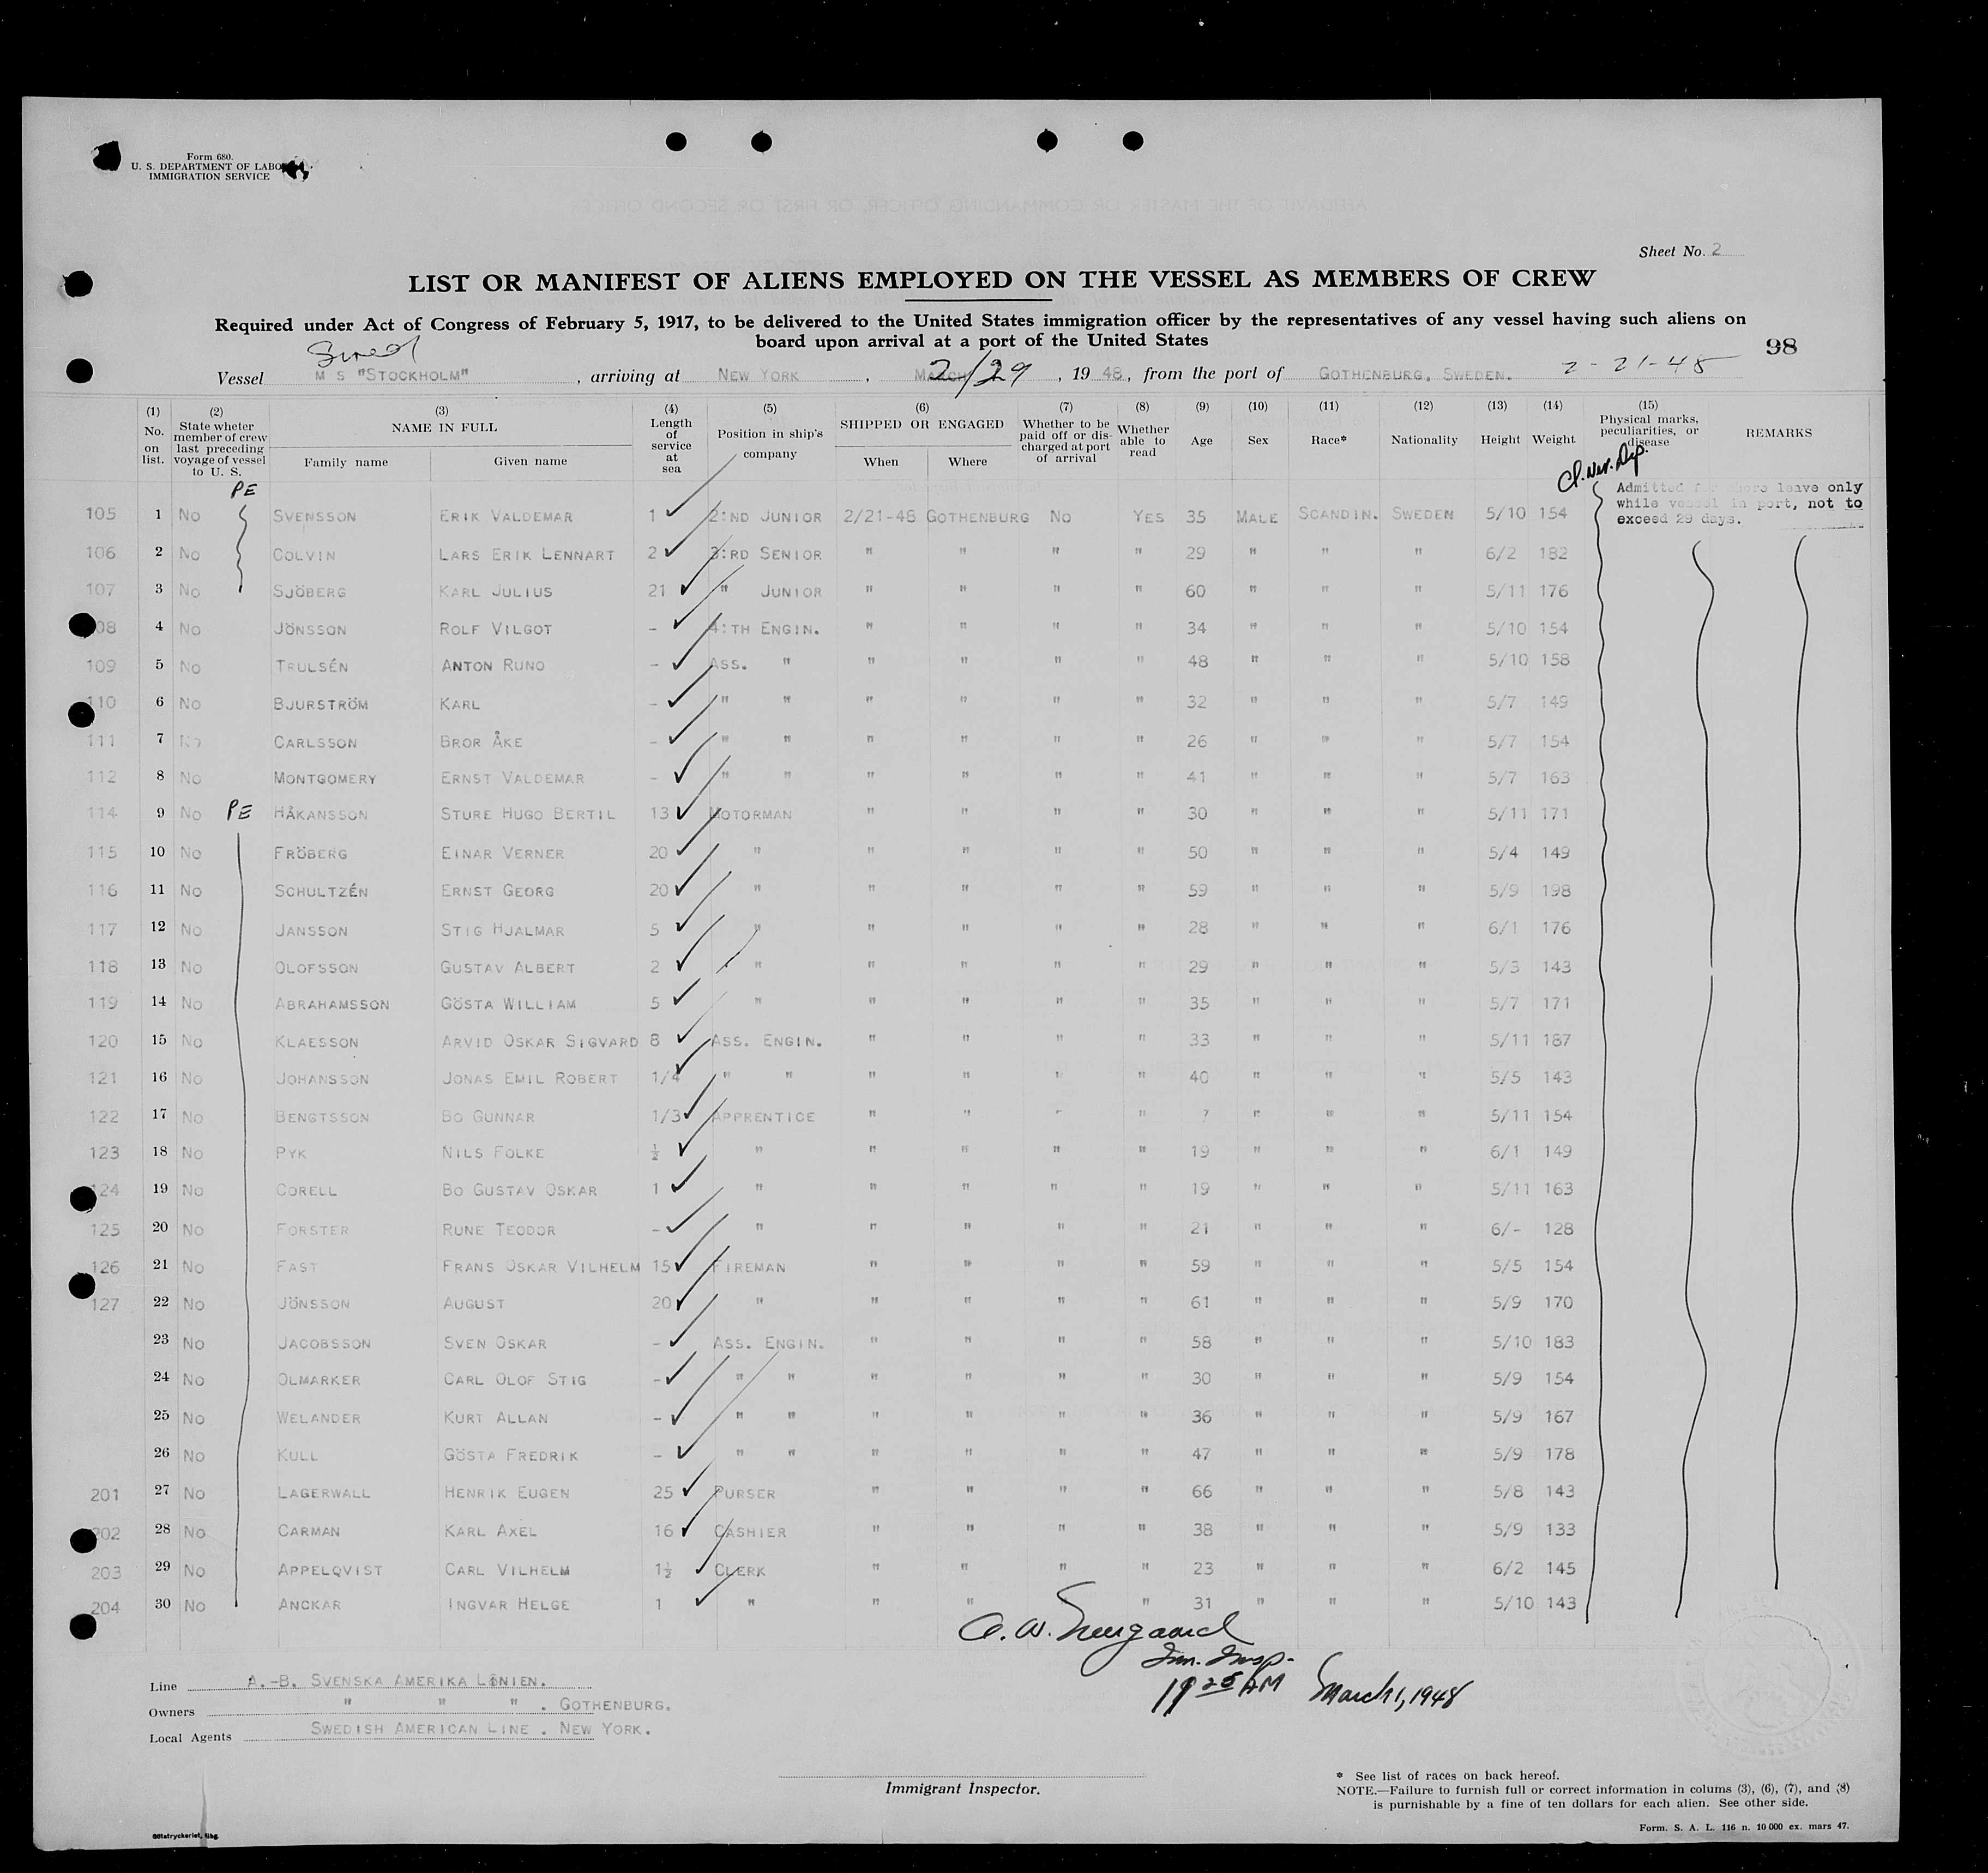 Form 680.
U. S. DEPARTMENT OF LABOR
IMMIGRATION SERVICE
Sheet No. 2
LIST OR MANIFEST OF ALIENS EMPLOYED ON THE VESSEL AS MEMBERS OF CREW
Required under Act of Congress of February 5, 1917, to be delivered to the United States immigration officer by the representatives of any vessel having such aliens on
board upon arrival at a port of the United States
98
Swed
Vessel M S "STOCKHOLM" , arriving at NEW YORK , MARCH 2/29 , 19 48, from the port of GOTHENBURG, SWEDEN. 2-21-48
(1) (2) (3) (4) (5) (6) (7) (8) (9) (10) (11) (12) (13) (14) (15)
No. on list. State wheter member of crew last preceding voyage of vessel to U. S. NAME IN FULL Family name Given name Length of service at sea Position in ship's company SHIPPED OR ENGAGED When Where Whether to be paid off or discharged at port of arrival Whether able to read Age Sex Race* Nationality Height Weight Physical marks, peculiarities, or disease REMARKS
PE
Admitted for shore leave only
while vessel in port, not to
exceed 29 days.
105 1 No SVENSSON ERIK VALDEMAR 1 2:ND JUNIOR 2/21-48 GOTHENBURG NO YES 35 MALE SCANDIN. SWEDEN 5/10 154
106 2 No COLVIN LARS ERIK LENNART 2 3:RD SENIOR " " " " 29 " " " 6/2 182
107 3 No SJÖBERG KARL JULIUS 21 " JUNIOR " " " " 60 " " " 5/11 176
108 4 No JÖNSSON ROLF VILGOT - 4:TH ENGIN. " " " " 34 " " " 5/10 154
109 5 No TRULSÉN ANTON RUNO - ASS. " " " " " 48 " " " 5/10 158
110 6 No BJURSTRÖM KARL - " " " " " " 32 " " " 5/7 149
111 7 No CARLSSON BROR ÅKE - " " " " " " 26 " " " 5/7 154
112 8 No MONTGOMERY ERNST VALDEMAR - " " " " " " 41 " " " 5/7 163
114 9 No PE HÅKANSSON STURE HUGO BERTIL 13 MOTORMAN " " " " 30 " " " 5/11 171
115 10 No FRÖBERG EINAR VERNER 20 " " " " " 50 " " " 5/4 149
116 11 No SCHULTZÉN ERNST GEORG 20 " " " " " 59 " " " 5/9 198
117 12 No JANSSON STIG HJALMAR 5 " " " " " 28 " " " 6/1 176
118 13 No OLOFSSON GUSTAV ALBERT 2 " " " " " 29 " " " 5/3 143
119 14 No ABRAHAMSSON GÖSTA WILLIAM 5 " " " " " 35 " " " 5/7 171
120 15 No KLAESSON ARVID OSKAR SIGVARD 8 ASS. ENGIN. " " " " 33 " " " 5/11 187
121 16 No JOHANSSON JONAS EMIL ROBERT 1/4 " " " " " " 40 " " " 5/5 143
122 17 No BENGTSSON BO GUNNAR 1/3 APPRENTICE " " " " " " " 5/11 154
123 18 No PYK NILS FOLKE ½ " " " " " 19 " " " 6/1 149
124 19 No CORELL BO GUSTAV OSKAR 1 " " " " " 19 " " " 5/11 163
125 20 No FORSTER RUNE TEODOR - " " " " " 21 " " " 6/- 128
126 21 No FAST FRANS OSKAR VILHELM 15 FIREMAN " " " " 59 " " " 5/5 154
127 22 No JÖNSSON AUGUST 20 " " " " " 61 " " " 5/9 170
23 No JACOBSSON SVEN OSKAR - ASS. ENGIN. " " " " 58 " " " 5/10 183
24 No OLMARKER CARL OLOF STIG - " " " " " " 30 " " " 5/9 154
25 No WELANDER KURT ALLAN - " " " " " " 36 " " " 5/9 167
26 No KULL GÖSTA FREDRIK - " " " " " " 47 " " " 5/9 178
201 27 No LAGERWALL HENRIK EUGEN 25 PURSER " " " " 66 " " " 5/8 143
202 28 No CARMAN KARL AXEL 16 CASHIER " " " " 38 " " " 5/9 133
203 29 No APPELQVIST CARL VILHELM 1½ CLERK " " " " 23 " " " 6/2 145
204 30 No ANCKAR INGVAR HELGE 1 " " " " 31 " " " 5/10 143
Imm. Insp.
March 1, 1948
Line A.-B. SVENSKA AMERIKA LINIEN.
Owners " " " . GOTHENBURG.
Local Agents SWEDISH AMERICAN LINE . NEW YORK.
Immigrant Inspector.
* See list of races on back hereof.
NOTE.—Failure to furnish full or correct information in colums (3), (6), (7), and (8)
is purnishable by a fine of ten dollars for each alien. See other side.
Form. S. A. L. 116 n. 10 000 ex. mars 47.
Götatryckeriet, Gbg.